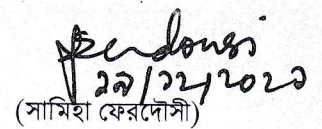 Ferdousi
২৯/১২/২০২১
(সামিহা ফেরদৌসী)